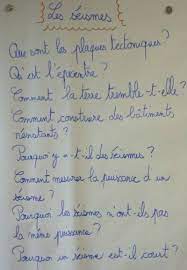 Les séismes
Que sont les plaques tectoniques ?
Qu'est l'épicentre ?
Comment la terre tremble-t-elle ?
Comment construire des bâtiments
résistants ?
Pourquoi y a-t-il des séismes ?
Comment mesurer la puissance d'un
séisme ?
Pourquoi les séismes n'ont-ils pas
la même puissance ?
Pourquoi un séisme est-il court ?